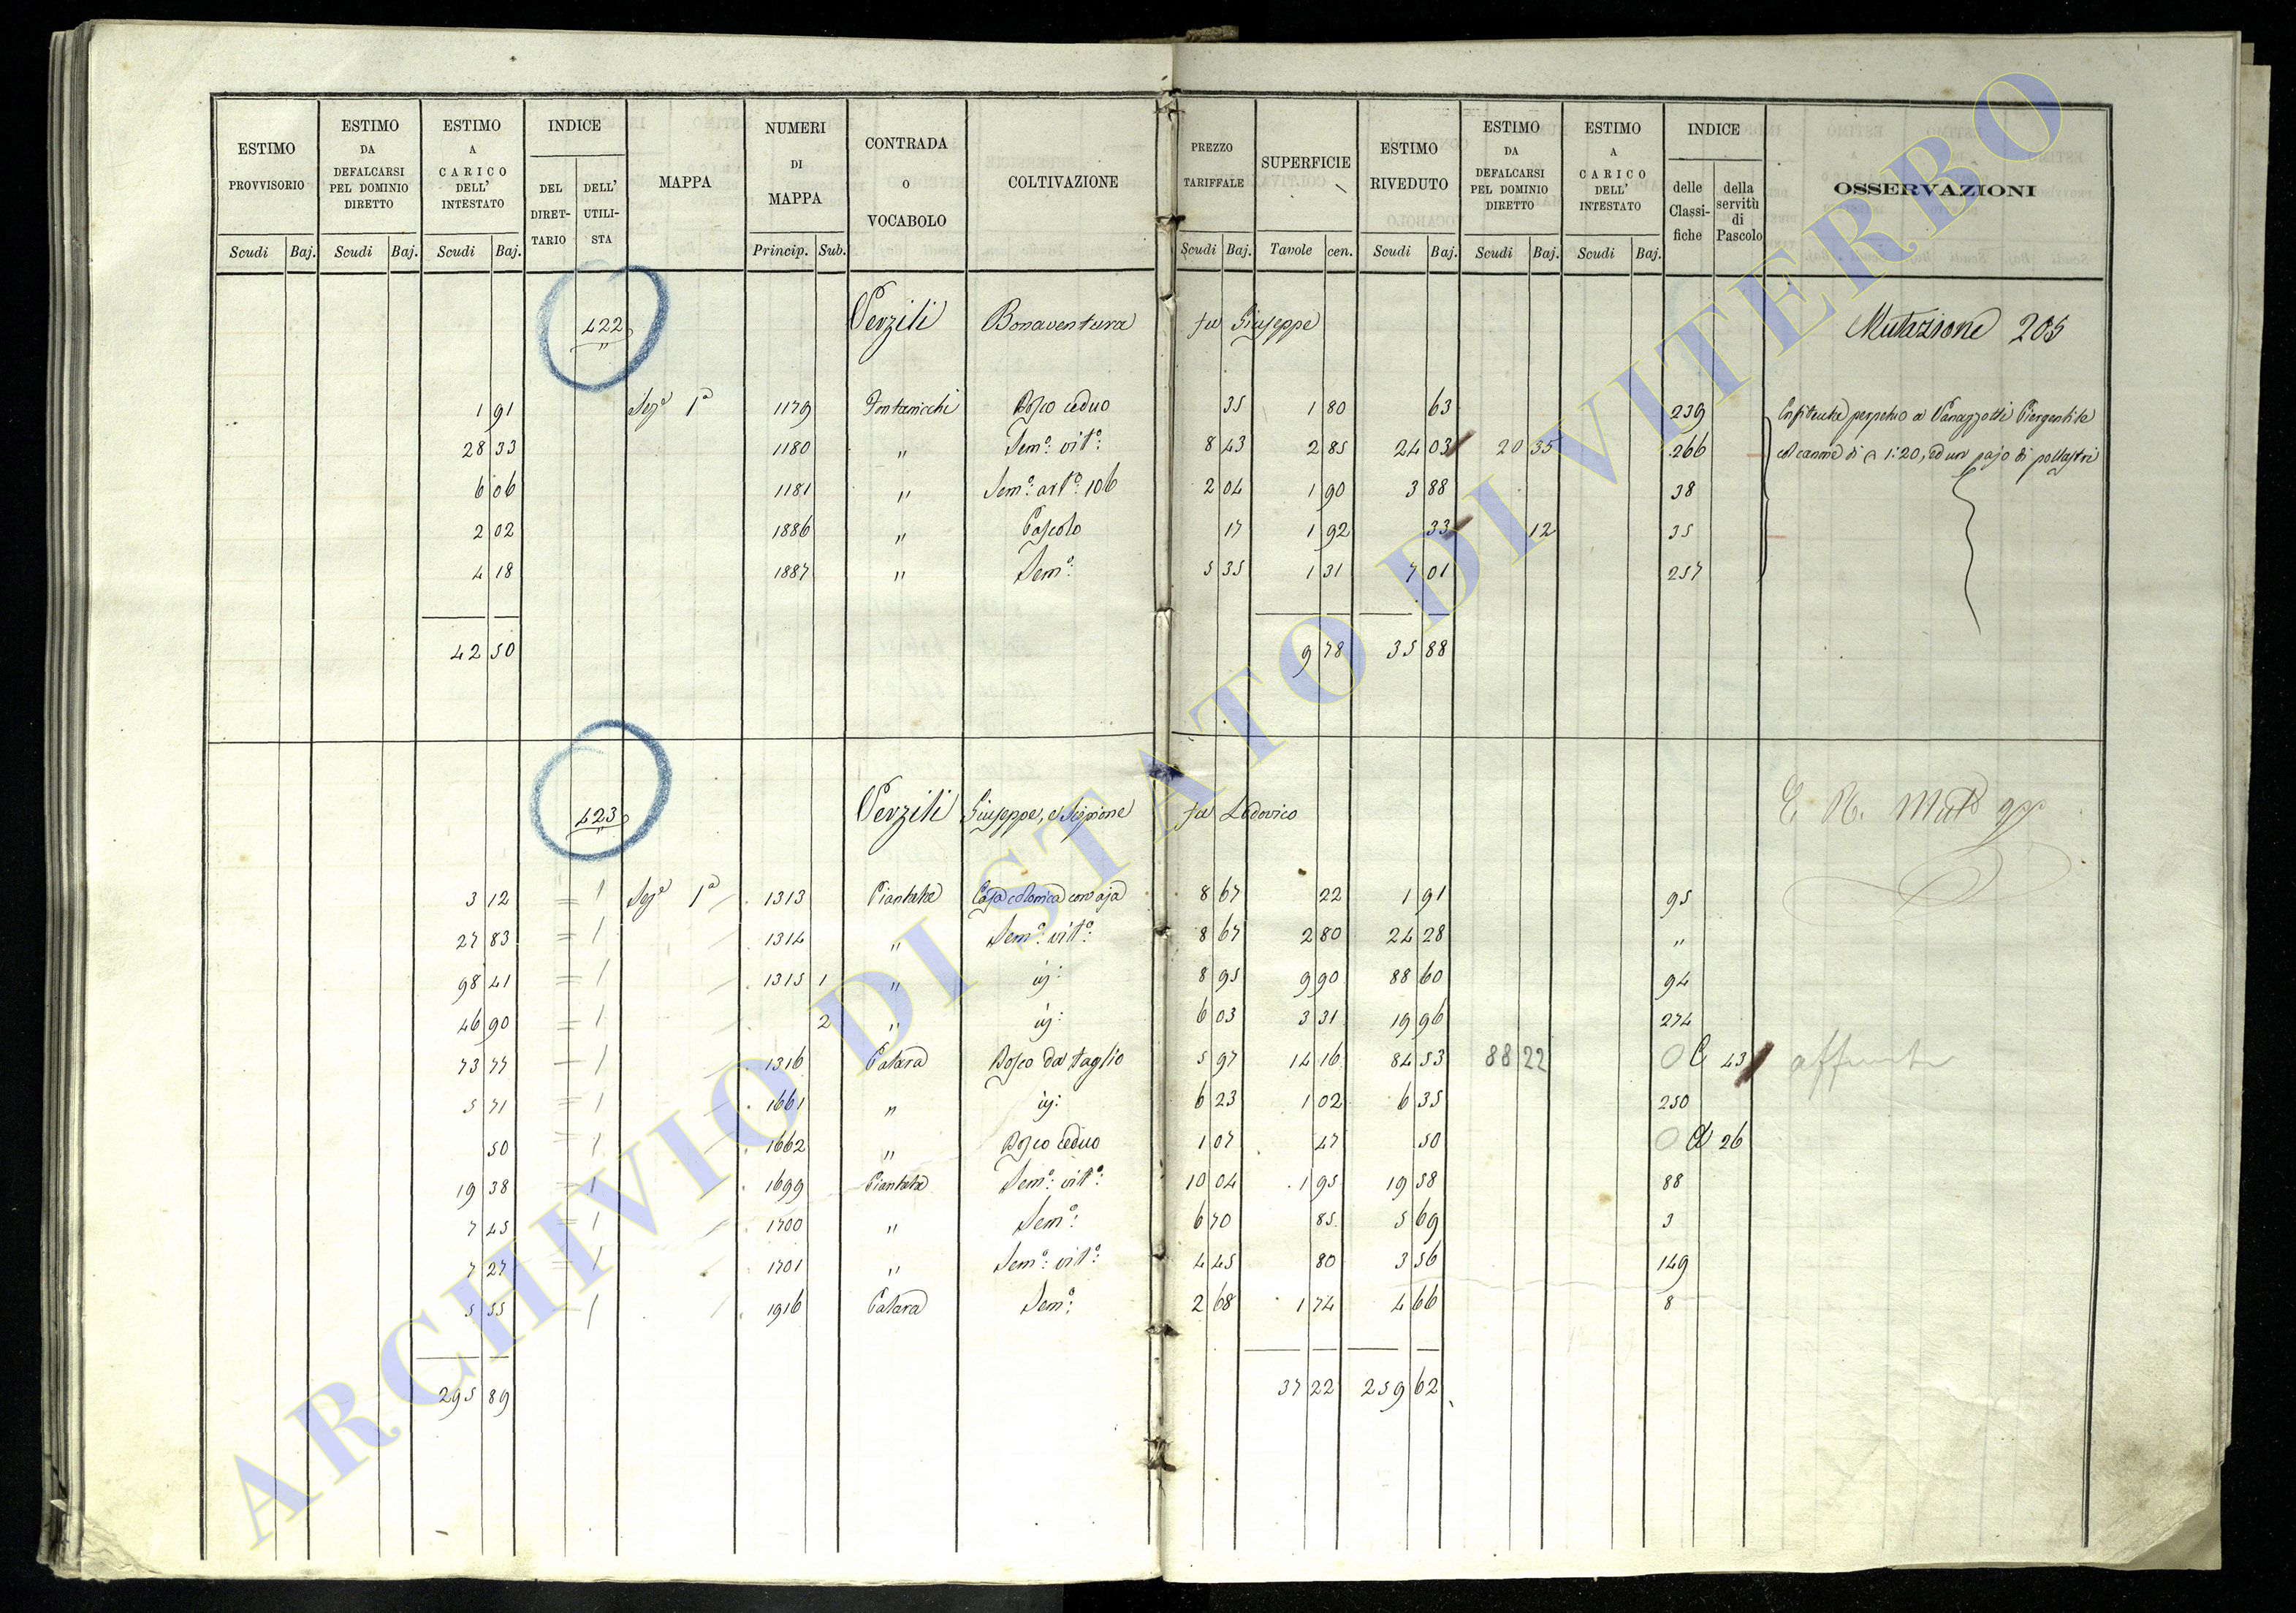 ESTIMO PROVVISORIO Scudi Baj. ESTIMO DA DEFALCARSI PEL DOMINIO DIRETTO Scudi Baj. ESTIMO A CARICO DELL' INTESTATO Scudi Baj. INDICE DEL DIRETTARIO DELL' UTILISTA MAPPA NUMERI DI MAPPA Princip. Sub. CONTRADA O VOCABOLO COLTIVAZIONE PREZZO TARIFFALE Scudi Baj. SUPERFICIE Tavole cen. ESTIMO RIVEDUTO Scudi Baj. ESTIMO DA DEFALCARSI PEL DOMINIO DIRETTO Scudi Baj. ESTIMO A CARICO DELL' INTESTATO Scudi Baj. INDICE delle Classifiche della servitù di Pascolo OSSERVAZIONI
422 Verzili Bonaventura fu Giuseppe Mutazione 205
1 91 Sezᵉ 1ª 1179 Bosco ceduo 35 1 80 63 239 perpetuo a
28 33 1180 " Semº: vitº: 8 43 2 85 24 03 20 35 266 di 1:20, ed un pajo di pollastri
6 06 1181 " Semº: artº: 106 2 04 1 90 3 88 38
2 02 1886 " Pascolo 17 1 92 33 12 35
4 18 1887 " Semº: 5 35 1 31 7 01 257
42 50 9 78 35 88
423 Verzili Giuseppe, e Scipione fu Lodovico
3 12 = 1 Sezᵉ 1ª 1313 Piantata Casa colonica con aja 8 67 22 1 91 95
27 83 = 1 1314 " Semº: vitº: 8 67 2 80 24 28 "
98 41 = 1 1315 1 " id: 8 95 9 90 88 60 94
46 90 = 1 2 " id: 6 03 3 31 19 96 274
73 77 1 1316 Palara Bosco da taglio 5 97 14 16 84 53 88 22 C 43
5 71 = 1 1661 " id: 6 23 1 02 6 35 250
50 = 1 1662 " Bosco ceduo 1 07 47 50 26
19 38 = 1 1699 Piantata Semº: vitº: 10 04 1 95 19 58 88
7 45 = 1 1700 " Semº: 6 70 85 5 69 3
7 27 = 1 1701 " Semº: vitº: 4 45 80 3 56 149
5 55 = 1 1916 Palara Semº: 2 68 1 74 4 66 8
295 89 37 22 259 62
ARCHIVIO DI STATO DI VITERBO